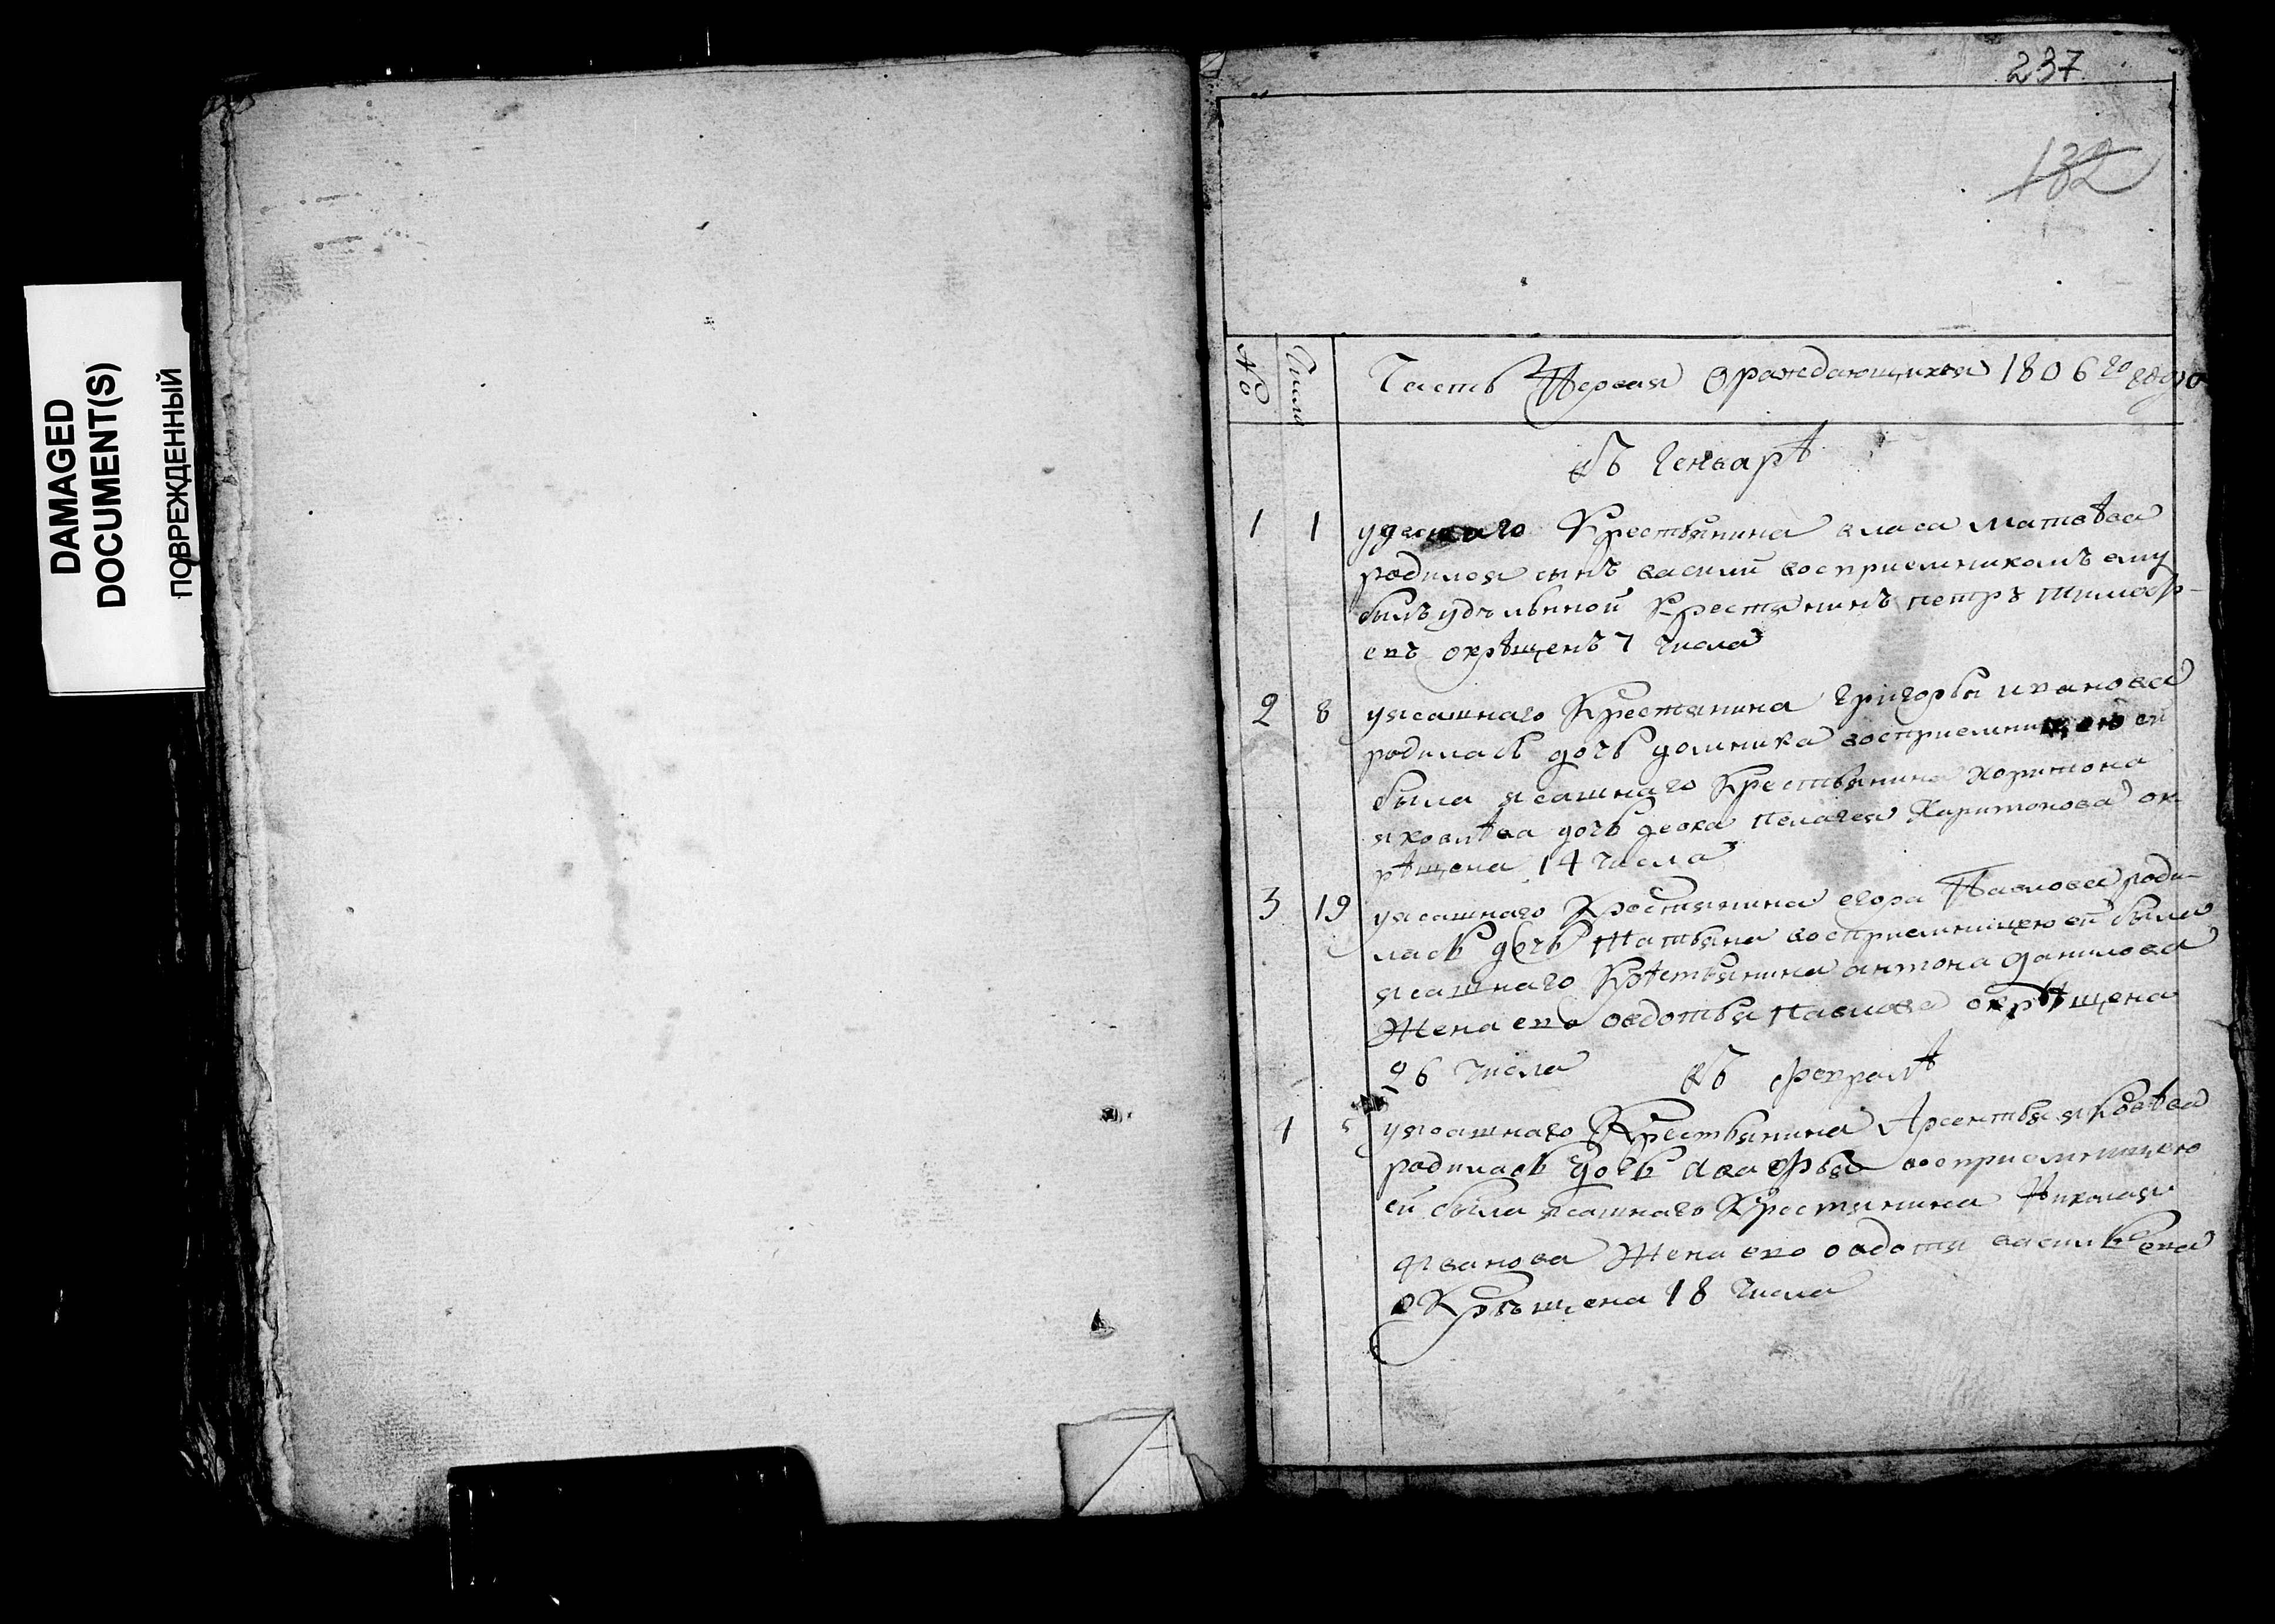 DAMAGED
DOCUMENT(S)
ПОВРЕЖДЕННЫЙ
237
132
№ Числа Часть Первая О раждающихся 1806 го года
въ Генварѣ
1 1 Крестьянина власа матвѣева
родился сынъ василий восприемникомъ ему
былъ удѣльной Крестянинъ петръ тимоф-
евъ окрѣщенъ 7 числа
2 8 уясашнаго Крестянина Григорья иванова
родилась дочь домника восприемницею ей
была ясашнаго Крестьянина харитона
яковлѣва дочь девка пелагея Харитонова ок-
рѣщена 14 числа
3 19 уясашнаго Крестьянина егора Павлова роди-
лась дочь Татьяна восприемницею ей была
ясашнаго Крѣстьянина антона данилова
Жена ево овдотья павлова окрѣщена
26 числа въ февралѣ
5 уясашнаго Крестьянина Арсентья яковѣва
родилась дочь восприемницею
ей была ясашнаго Крестянина Николая
Иванова Жена ево овдотя васильева
окрѣщена 18 числа